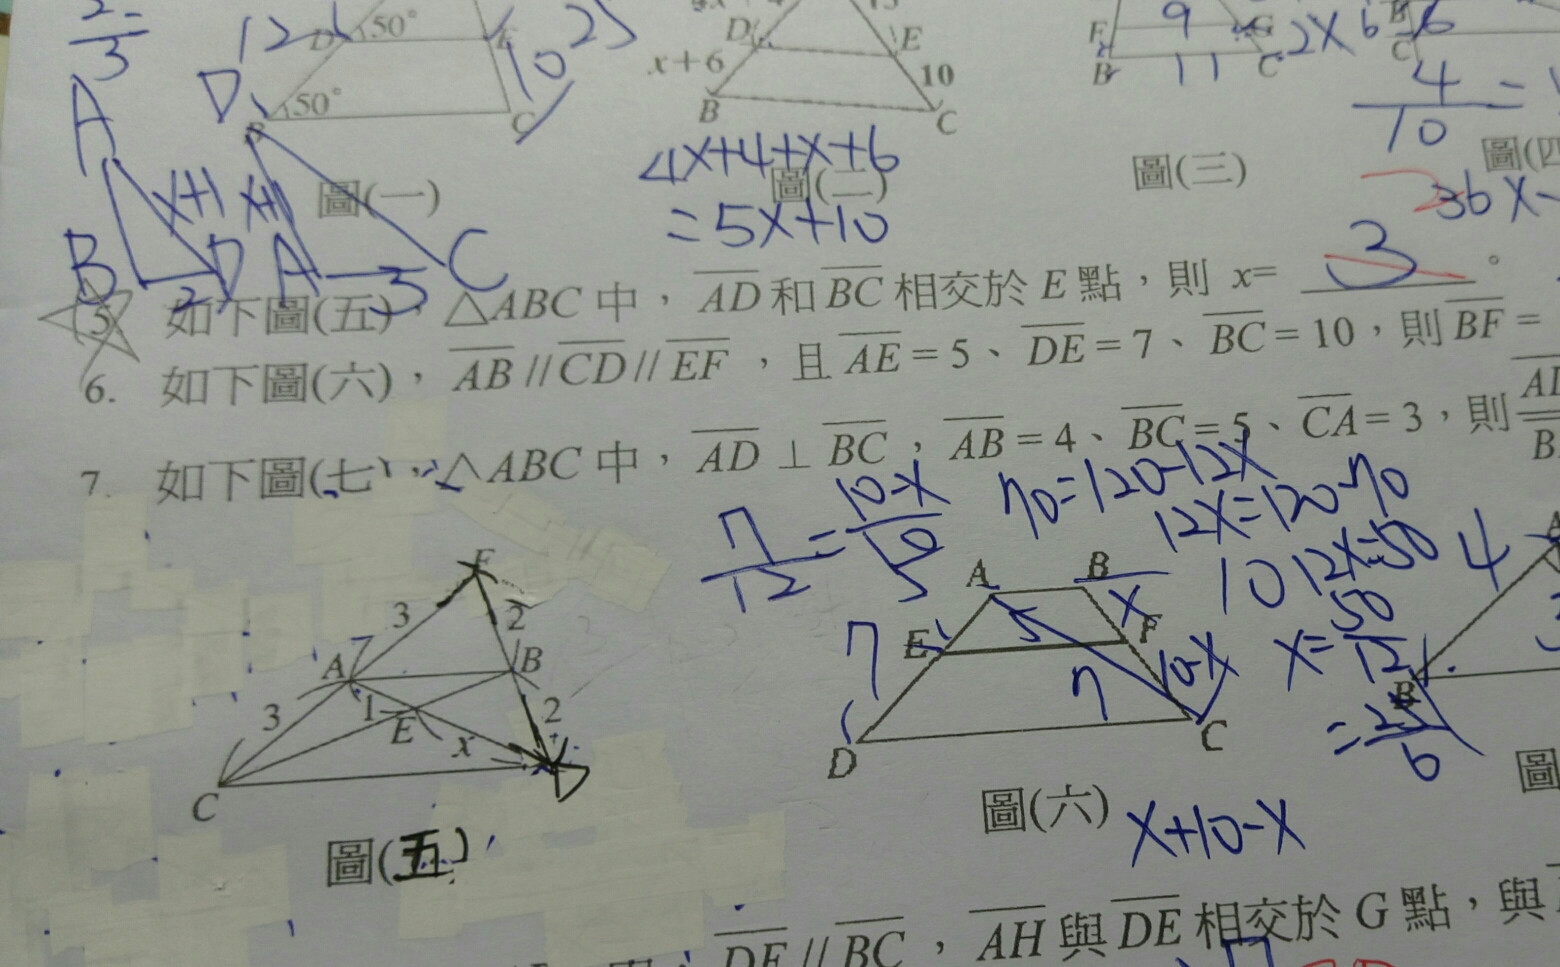 2
3
12
D
50°
E
10
25
D
50°
C
D
E
x+6
10
B
C
F
9
G
2x
6
B
11
C
B
6
C
4
10
=
A
x+1
x+1
圖(一)
4x+4+x+6
圖(二)
=5x+10
圖(三)
圖(四
36x-
B
2
D
A
3
C
5. 如下圖(五)，△ABC 中，AD 和 BC 相交於 E 點，則 x= 3 。
6. 如下圖(六)，AB // CD // EF，且 AE = 5、DE = 7、BC = 10，則 BF =
7. 如下圖(七)，△ABC 中，AD ⊥ BC，AB = 4、BC = 5、CA = 3，則
7
12
=
10-x
10
5
70=120-12x
12x=120-70
12x=50
10
x=
50
12
=
6
4
F
3
2
7
A
B
3
1
E
x
2
C
D
圖(五)
A
B
x
E
5
F
7
7
10-x
D
C
圖(六)
x+10-x
A
B
圖
DE // BC，AH 與 DE 相交於 G 點，與